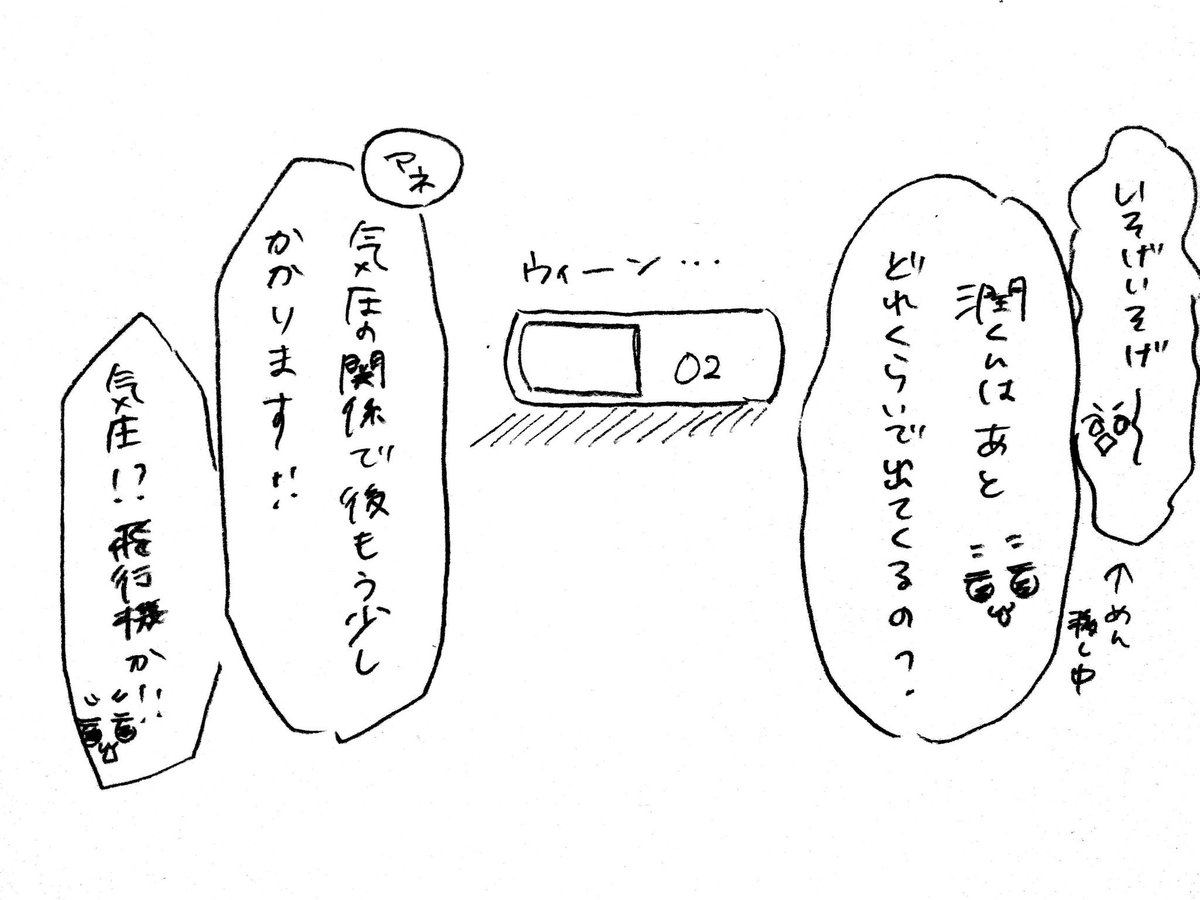 いそげいそげ〜
↑めん
潤くんはあと
どれくらいで出てくるの?
ウィーン…
O2
マネ
気圧の関係で後もう少し
かかります!!
気圧!? 飛行機か!!